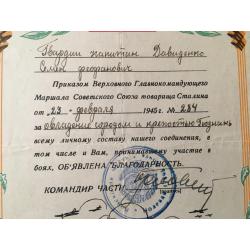 Гвардии капитан Давиденко
Семен Феофанович
Приказом Верховного Главнокомандующего
Маршала Советского Союза товарища Сталина
от „23" февраля 1945 г. № 284
за овладение городом и крепостью Познань
всему личному составу нашего соединения, в
том числе и Вам, принимавшему участие в
боях, ОБ'ЯВЛЕНА БЛАГОДАРНОСТЬ.
КОМАНДИР ЧАСТИ